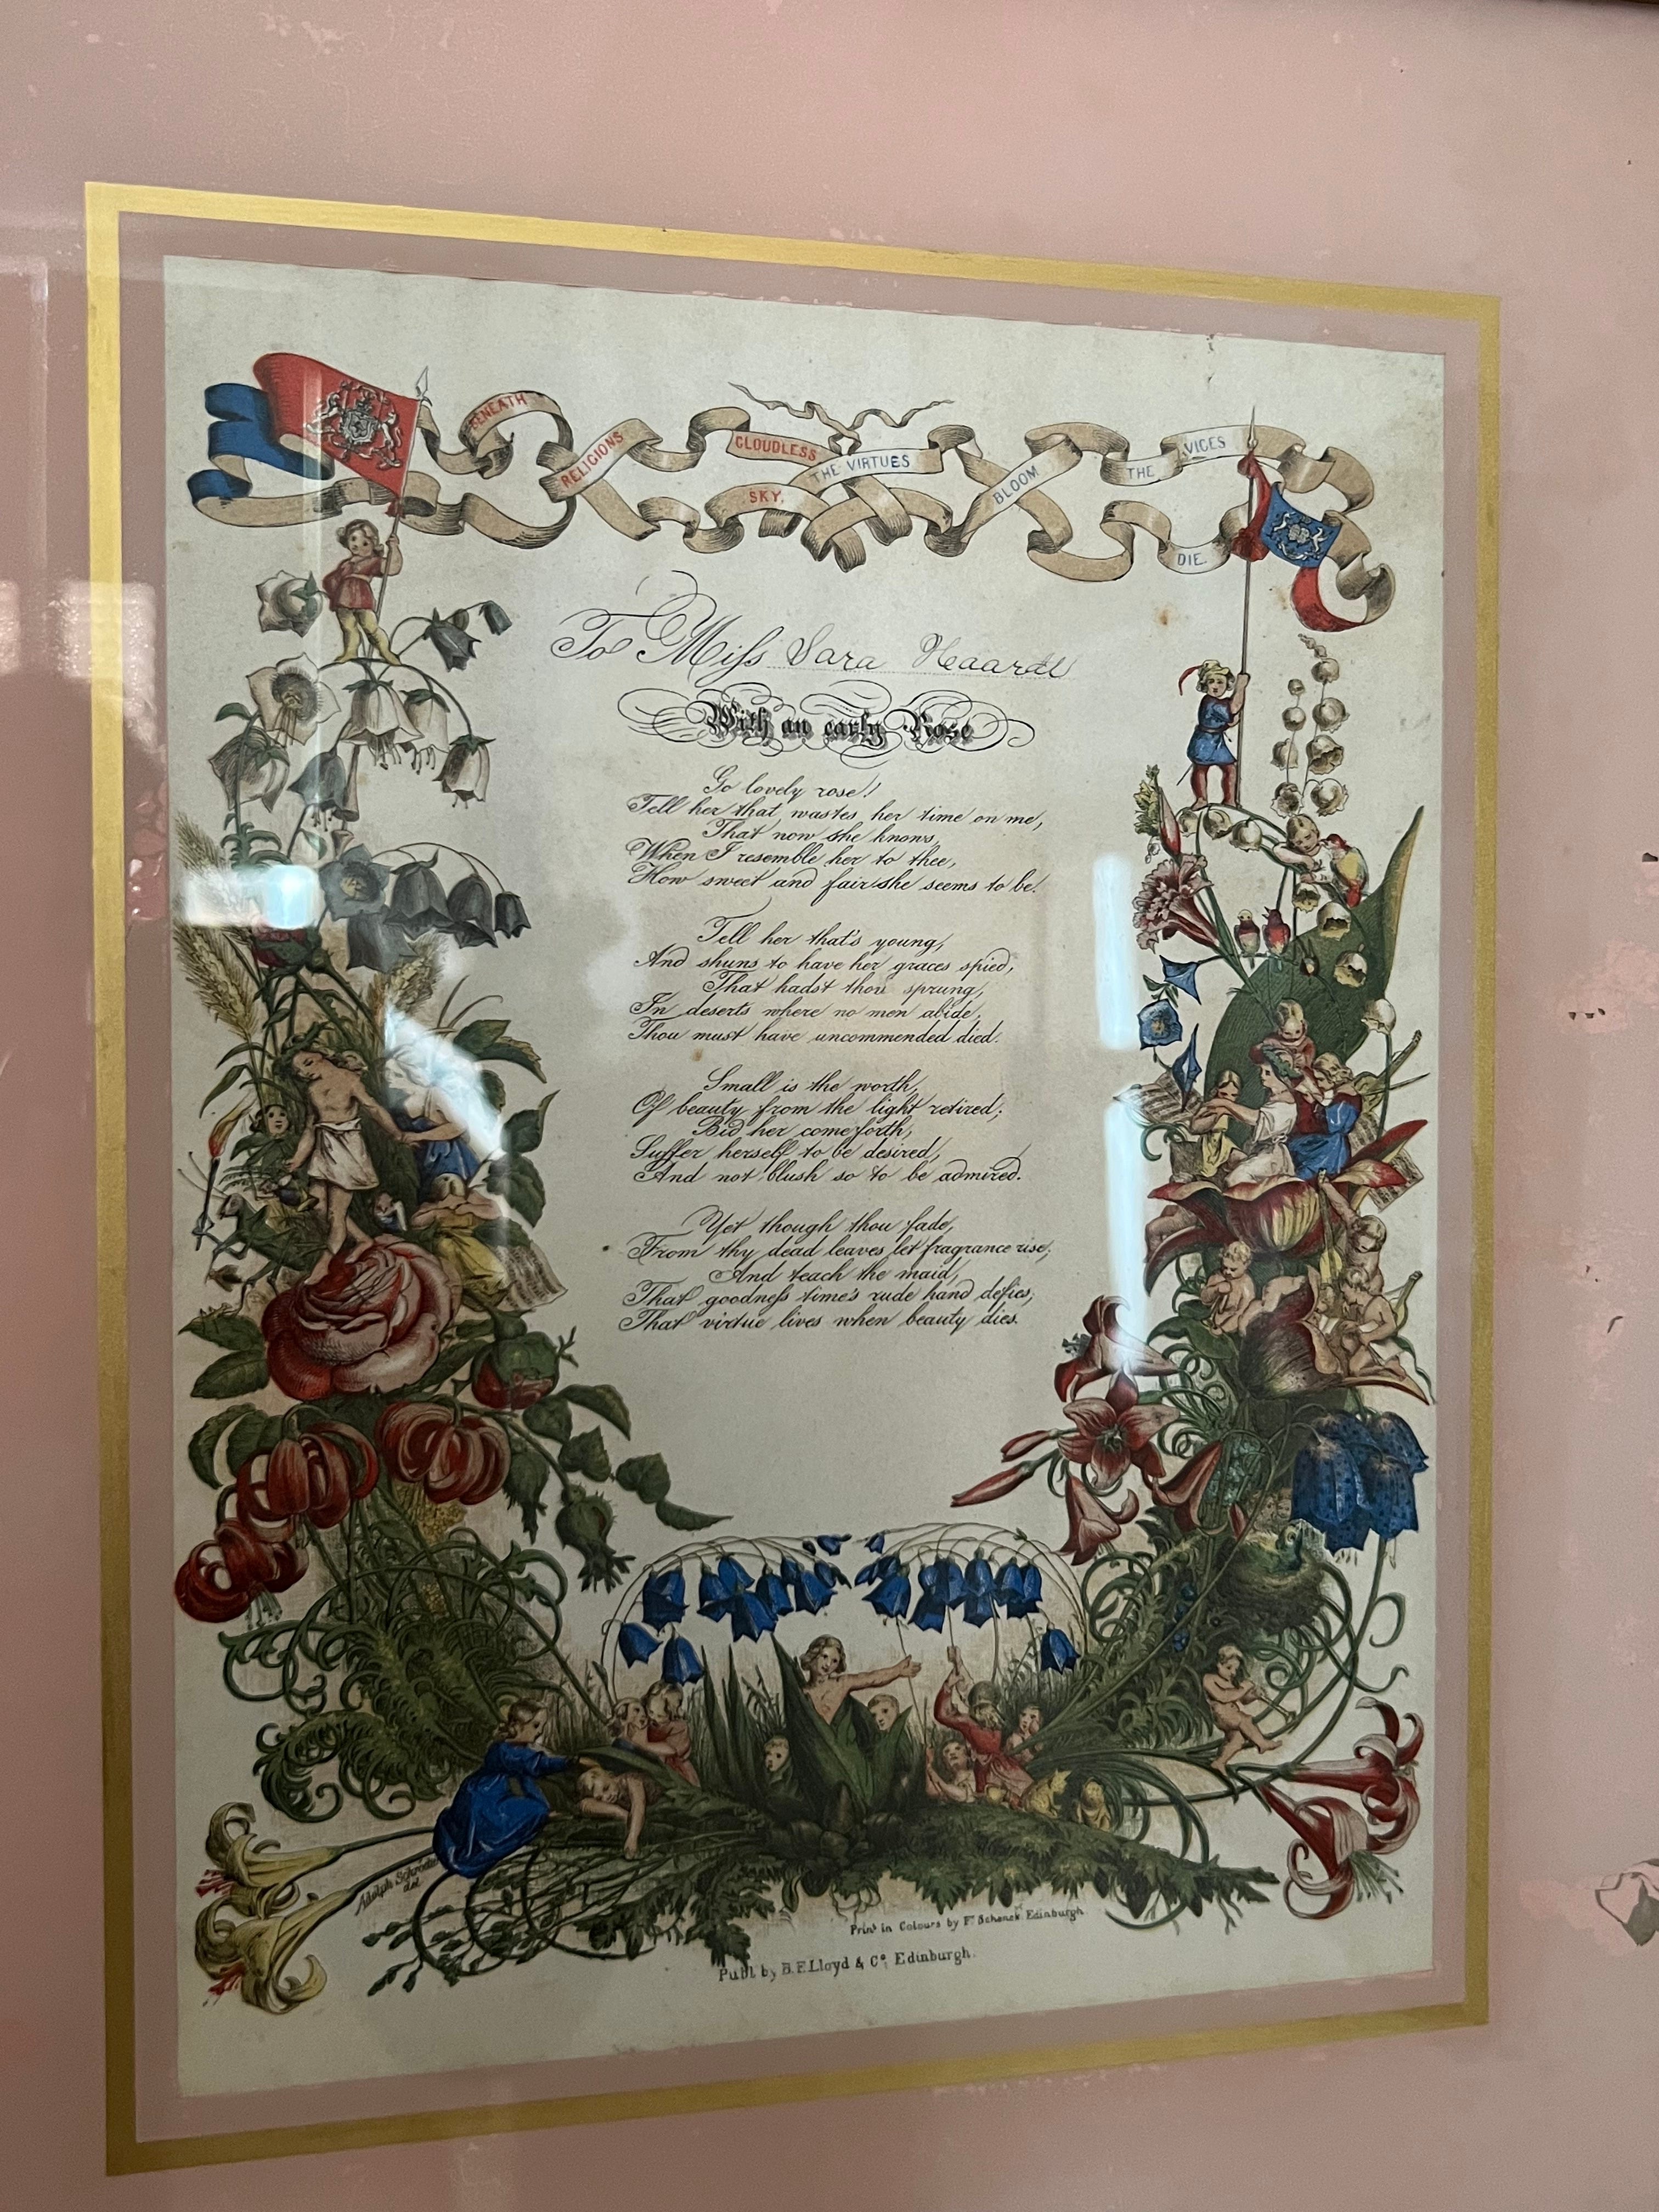 BENEATH
RELIGIONS
CLOUDLESS
SKY,
THE VIRTUES
BLOOM
THE
VICES
DIE.
To Miſs Sara Haardt
With an early Rose
Go lovely rose!
Tell her that wastes her time on me,
That now she knows,
When I resemble her to thee,
How sweet and fair she seems to be!
Tell her that's young,
And shuns to have her graces spied,
That hadst thou sprung,
In deserts where no men abide,
Thou must have uncommended died.
Small is the worth,
Of beauty from the light retired;
Bid her come forth,
Suffer herself to be desired,
And not blush so to be admired.
Yet though thou fade,
From thy dead leaves let fragrance rise;
And teach the maid,
That goodneſs time's rude hand defies,
That virtue lives when beauty dies.
Adolph Schroedter
del
Print in Colours by Fr Schenck Edinburgh
Publ. by B.F. Lloyd & Co. Edinburgh.